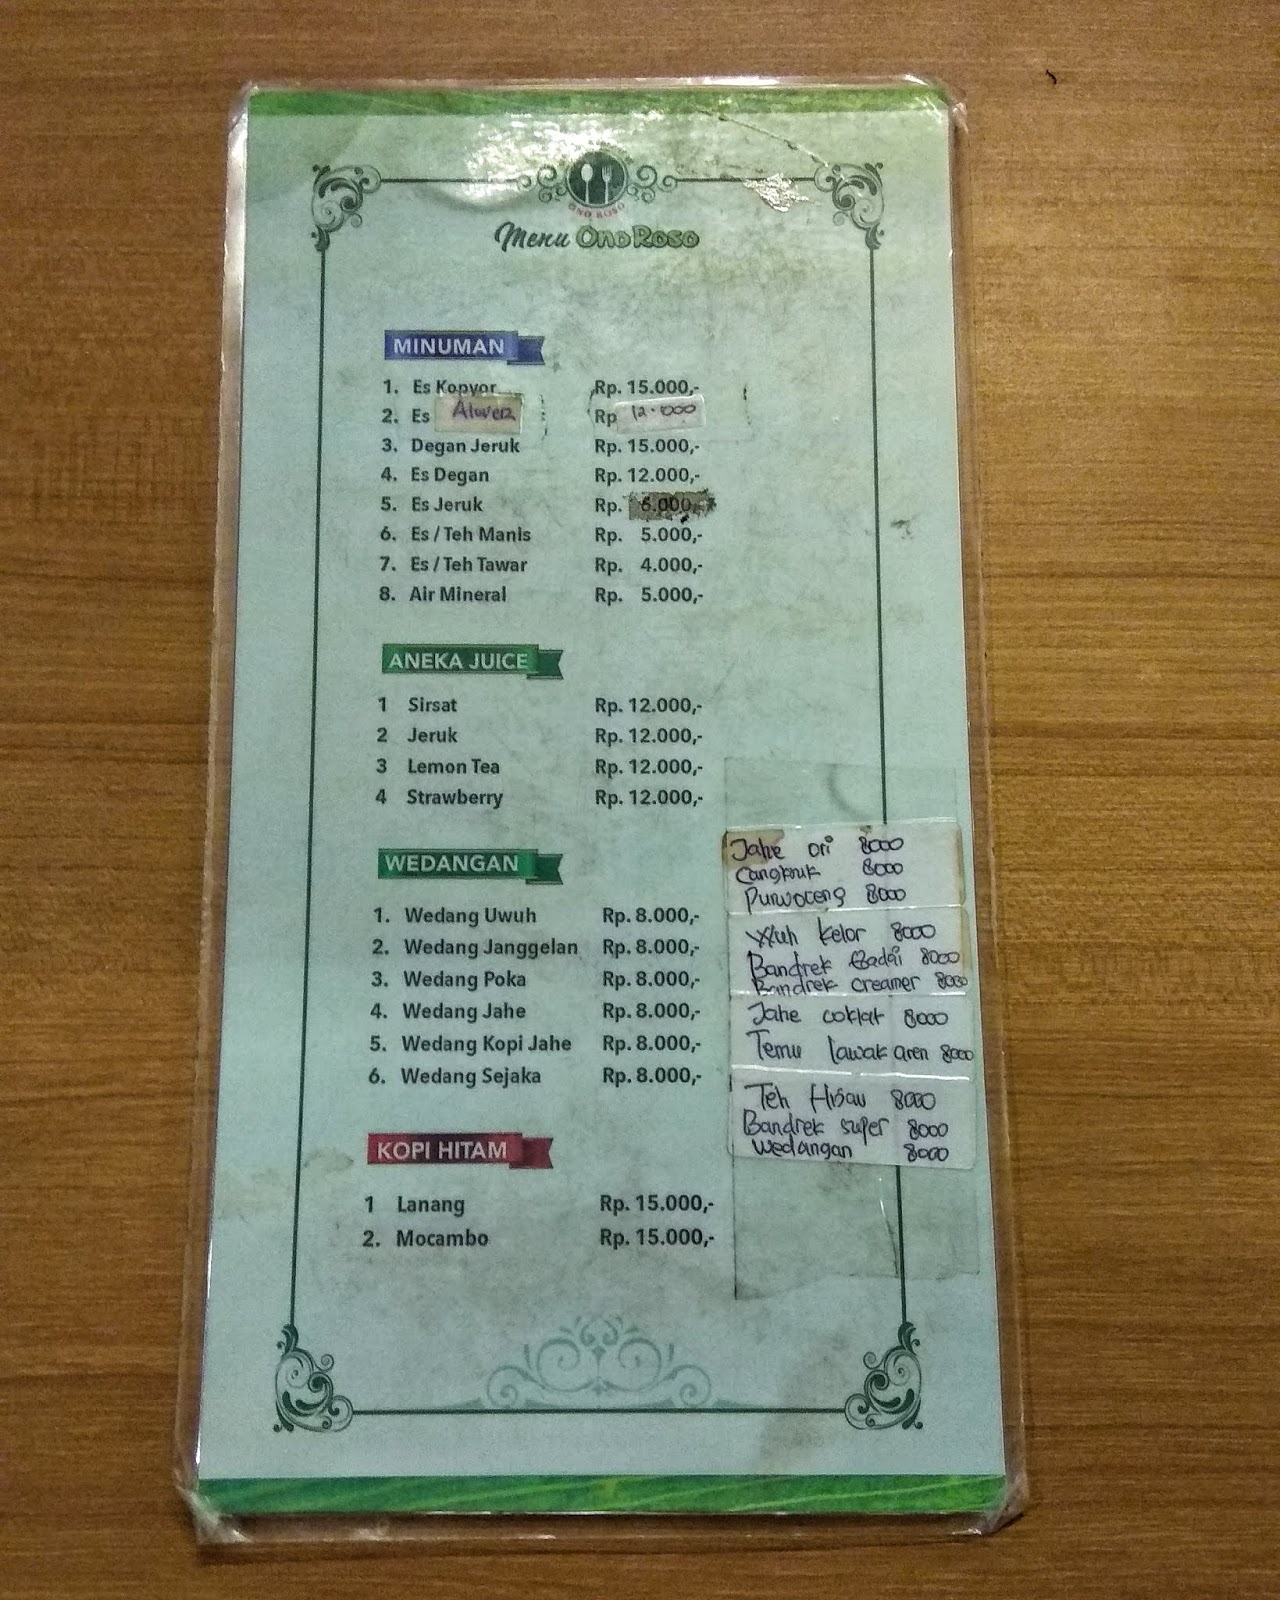 ONO ROSO
Menu Ono Roso
MINUMAN
1. Es Kopyor Rp. 15.000,-
2. Es Alovera Rp 12.000
3. Degan Jeruk Rp. 15.000,-
4. Es Degan Rp. 12.000,-
5. Es Jeruk Rp. 6.000,-
6. Es / Teh Manis Rp. 5.000,-
7. Es / Teh Tawar Rp. 4.000,-
8. Air Mineral Rp. 5.000,-
ANEKA JUICE
1 Sirsat Rp. 12.000,-
2 Jeruk Rp. 12.000,-
3 Lemon Tea Rp. 12.000,-
4 Strawberry Rp. 12.000,-
WEDANGAN
1. Wedang Uwuh Rp. 8.000,-
2. Wedang Janggelan Rp. 8.000,-
3. Wedang Poka Rp. 8.000,-
4. Wedang Jahe Rp. 8.000,-
5. Wedang Kopi Jahe Rp. 8.000,-
6. Wedang Sejaka Rp. 8.000,-
Jahe ori 8000
Cangkruk 8000
Purwoceng 8000
kelor 8000
Bandrek 8000
Bandrek creamer 8000
Jahe coklat 8000
Temu lawak aren 8000
Teh Hijau 8000
Bandrek super 8000
wedangan 8000
KOPI HITAM
1 Lanang Rp. 15.000,-
2. Mocambo Rp. 15.000,-